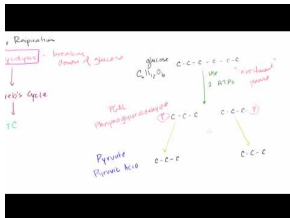 Respiration
Glycolysis - breaking down of glucose
Kreb's Cycle
ETC
glucose C-C-C-C-C-C
C₆H₁₂O₆
use 2 ATPs
"investment" phase
PGAL
Phosphoglyceraldehyde
P C-C-C C-C-C P
Pyruvate
Pyruvic Acid
C-C-C C-C-C